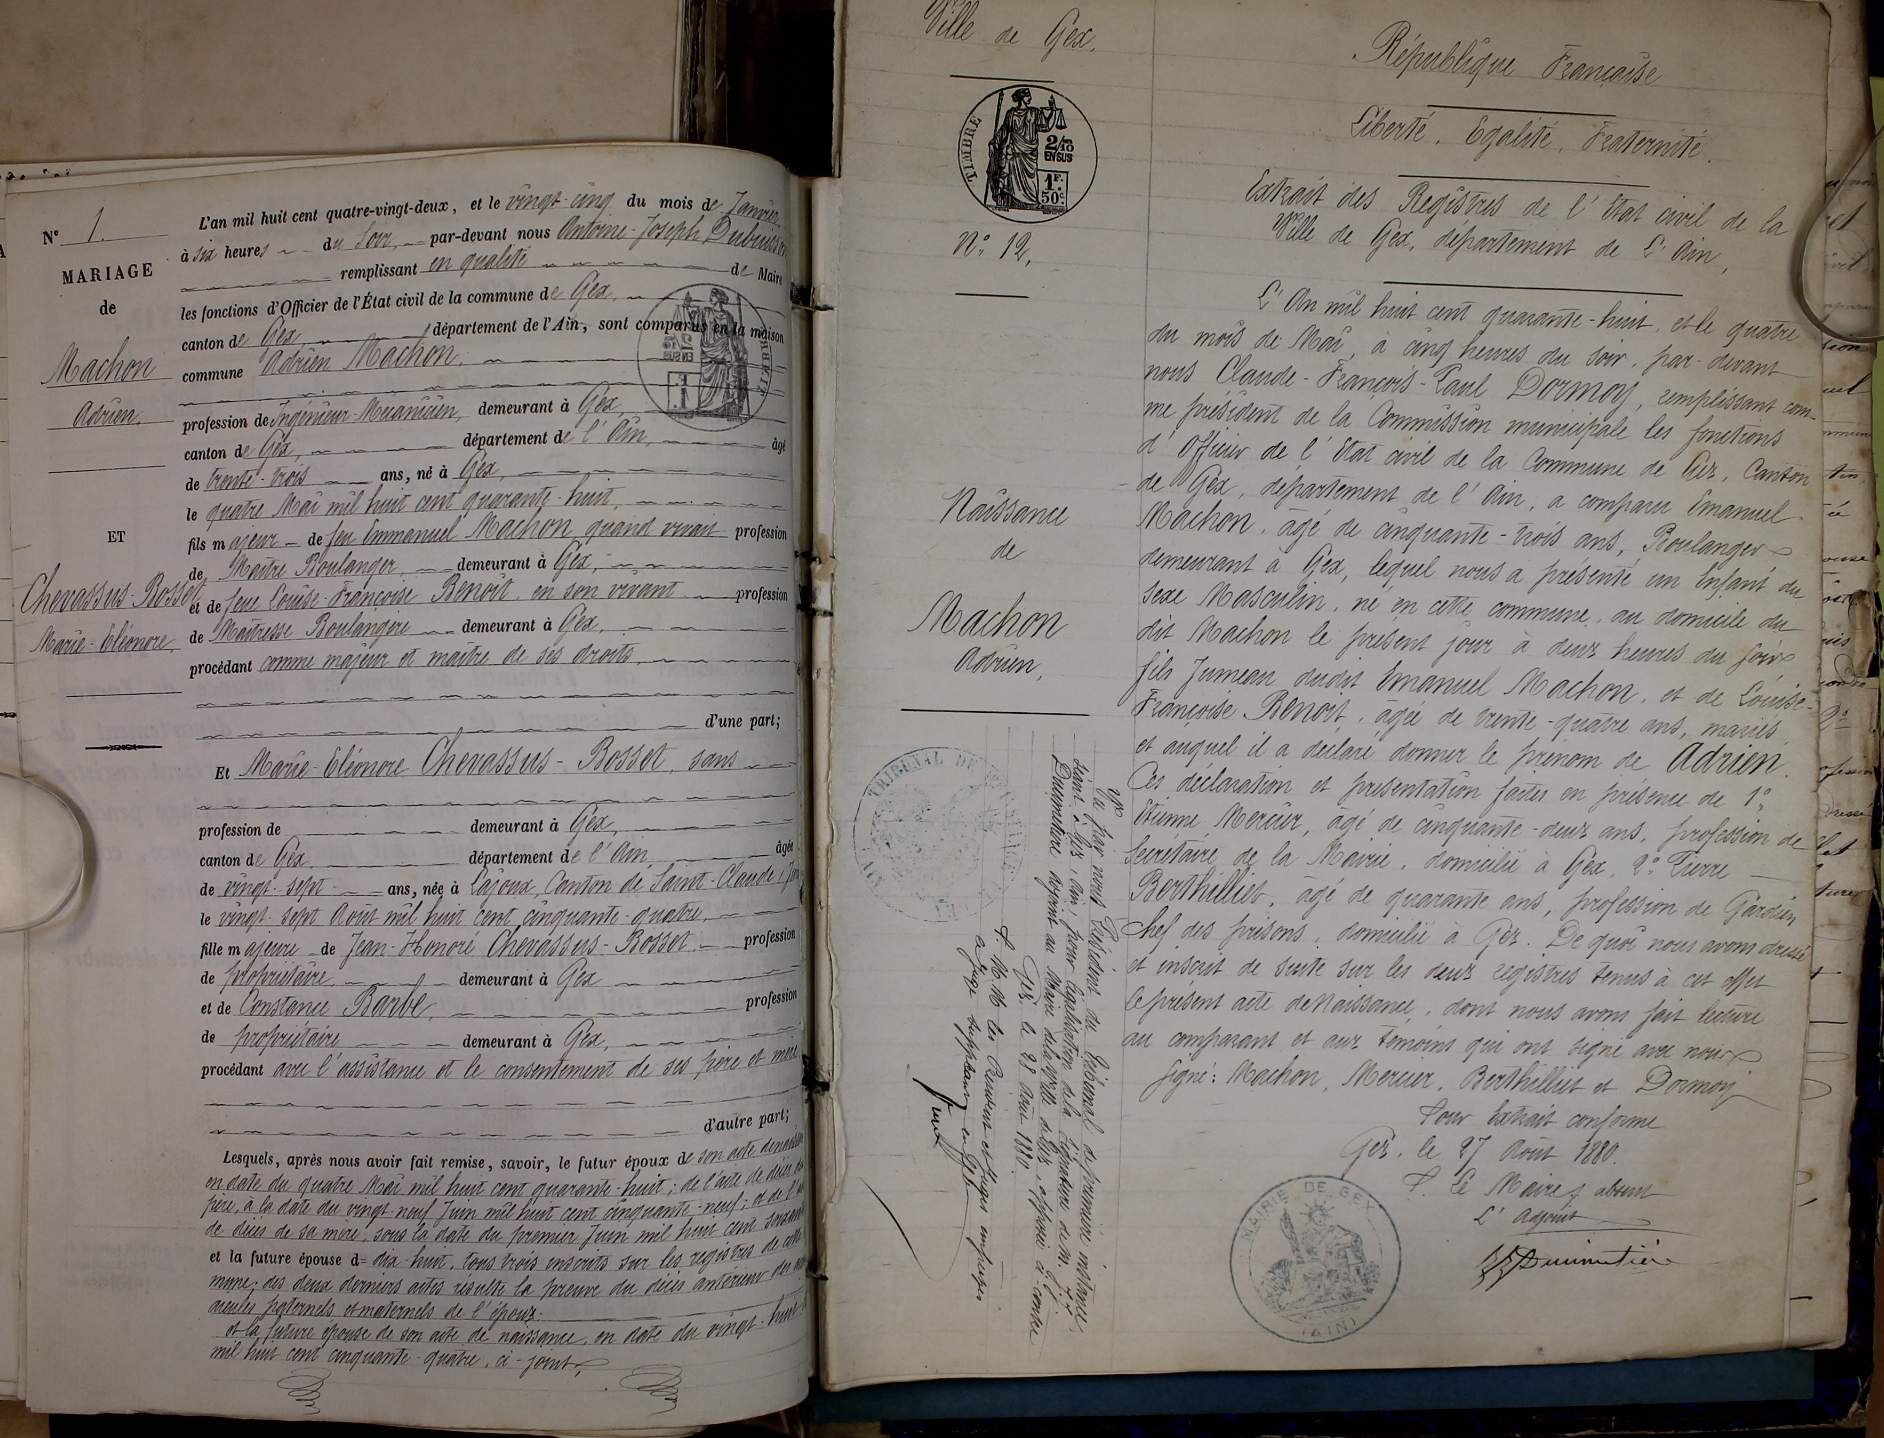 N° 1.
MARIAGE
de
Machon
Adrien.
ET
Chevassus-Bosset
Marie-Eléonore.
L'an mil huit cent quatre-vingt-deux, et le vingt-cinq du mois de Janvier
à six heures du Soir, par-devant nous Antoine-Joseph
remplissant en qualité de Maire
les fonctions d'Officier de l'État civil de la commune de Gex,
canton de Gex, département de l'Ain, sont comparus en la maison
commune Adrien Machon,
profession de Ingénieur-Mécanicien, demeurant à Gex,
canton de Gex, département de l'Ain, âgé
de trente-trois ans, né à Gex,
le quatre Mai mil huit cent quarante-huit,
fils majeur de feu Emmanuel Machon, quand vivait profession
de Maître Boulanger demeurant à Gex,
et de feue Louise-Françoise Benoit, en son vivant profession
de Maîtresse Boulangère demeurant à Gex,
procédant comme majeur et maître de ses droits,
d'une part;
Et Marie-Eléonore Chevassus-Bosset, sans
profession de demeurant à Gex,
canton de Gex département de l'Ain, âgée
de vingt-sept ans, née à Lajoux, Canton de Saint-Claude
le vingt-sept Août mil huit cent cinquante-quatre,
fille majeure de Jean-Honoré Chevassus-Bosset profession
de propriétaire, demeurant à Gex
et de Constance Barbe, profession
de propriétaire demeurant à Gex,
procédant avec l'assistance et le consentement de ses père et mère
d'autre part;
Lesquels, après nous avoir fait remise, savoir, le futur époux de son acte de
en date du quatre Mai mil huit cent quarante-huit; de l'acte de décès
père, à la date du vingt neuf Juin mil huit cent cinquante-neuf; et de
de décès de sa mère, sous la date du premier Juin mil huit cent
et la future épouse d= dix-huit, tous trois inscrits sur les registres de cette
mune; des deux derniers actes résulte la preuve du décès antérieur des
aieuls paternels et maternels de l'époux.
et la future épouse de son acte de naissance, en date du vingt-huit
mil huit cent cinquante-quatre, ci-joint,
Ville de Gex.
TIMBRE
2/10
EN SUS
1F.
50c
N° 12.
Naissance
de
Machon
Adrien.
Vu par nous Président du Tribunal de première instance
séant à Gex, (Ain) pour légalisation de la Signature de M.
Duimetière ayant au Maire de la ville de Gex, apposée ci-contre
Gex, le 28 Août 1880.
P. M.M. les Président et Juges empêchés
Le Juge suppléant
République Française
Liberté, Egalité, Fraternité.
Extrait des Registres de l'Etat civil de la
Ville de Gex, département de l'Ain,
L'An mil huit cent quarante-huit, et le quatre
du mois de Mai, à cinq heures du soir, par-devant
nous Claude-François-Paul Dormoy, remplissant com-
me président de la Commission municipale les fonctions
d'Officier de l'Etat civil de la Commune de Gex, Canton
de Gex, département de l'Ain, a comparu Emanuel
Machon, âgé de cinquante-trois ans, Boulanger
demeurant à Gex, lequel nous a présenté un Enfant du
sexe Masculin, né en cette commune, au domicile du
dit Machon le présent jour à deux heures du soir
fils Jumeau dudit Emanuel Machon, et de Louise-
Françoise Benoit, âgée de trente-quatre ans, mariés
et auquel il a déclaré donner le prénom de Adrien.
Ces déclaration et présentation faites en présence de 1°
Etienne Mercier, âgé de cinquante-deux ans, profession de
Secrétaire de la Mairie, domicilié à Gex, 2° Pierre
Berthilliet, âgé de quarante ans, profession de Gardien
Chef des prisons, domicilié à Gex. De quoi nous avons dressé
et inscrit de suite sur les deux registres tenus à cet effet
le présent acte de Naissance, dont nous avons fait lecture
au comparant et aux témoins qui ont signé avec nous
Signé: Machon, Mercier, Berthilliet et Dormoy
Pour Extrait conforme
Gex, le 27 Août 1880.
P. Le Maire, absent
L'Adjoint
MAIRIE DE GEX
(AIN)